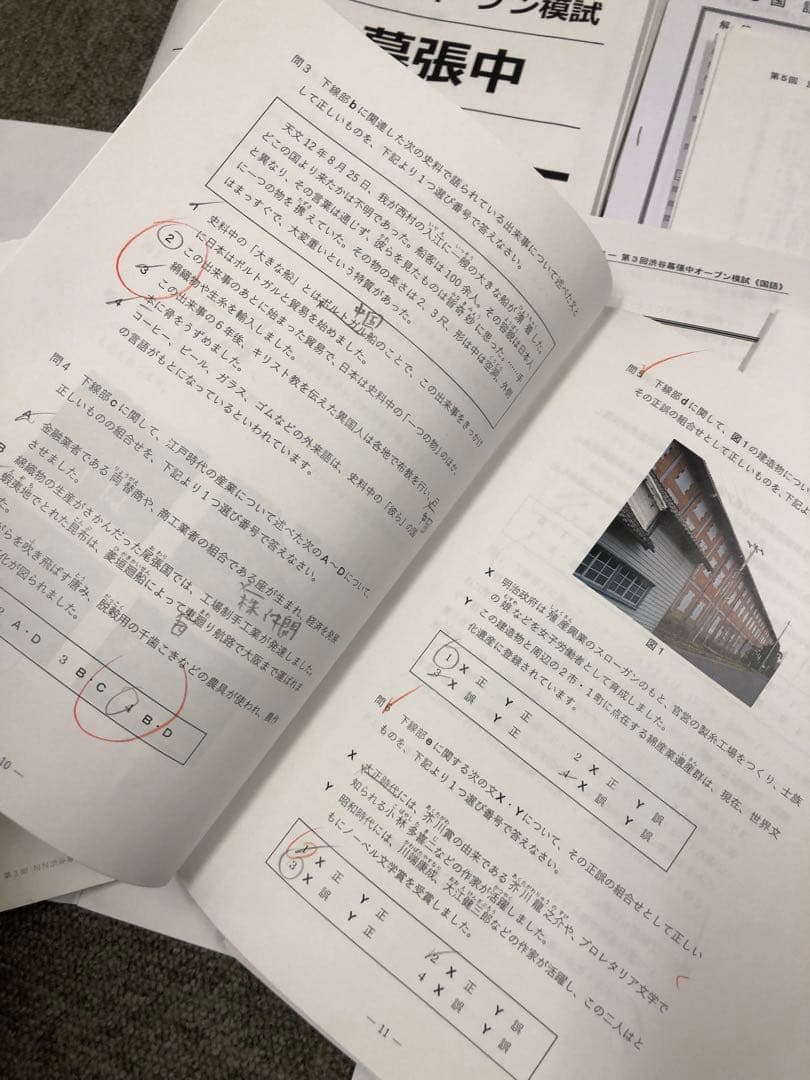 オープン模試
幕張中
第5回
第3回渋谷幕張中オープン模試《国語》
問3 下線部bに関連した次の史料で語られている出来事について述べた文と
して正しいものを、下記より1つ選び番号で答えなさい。
天文12年8月25日、我が西村の入江に一艘の大きな船が漂着した。
どこの国より来たかは不明であった。船客は100余人。その容貌は日本人
と異なり、その言葉は通じず、彼らを見たものは皆奇妙に思った。……手
に一つの物を携えていた。その物の長さは2、3尺、形は中は空洞、外側
はまっすぐで、大変重いという特質があった。
史料中の「大きな船」とはポルトガル船のことで、この出来事をきっかけ
に日本はポルトガルと貿易を始めました。
中国
② この出来事のあとに始まった貿易で、日本は史料中の「一つの物」のほか、
絹織物や生糸を輸入しました。
3 この出来事の6年後、キリスト教を伝えた異国人は各地で布教を行い、日
本に骨をうずめました。
4 コーヒー、ビール、ガラス、ゴムなどの外来語は、史料中の「彼ら」の国
の言語がもとになっているといわれています。
問4 下線部cに関して、江戸時代の産業について述べた次のA～Dについて、
正しいものの組合せを、下記より1つ選び番号で答えなさい。
A 金融業者である両替商や、商工業者の組合である座が生まれ、経済を発展
させました。
株仲間
B 綿織物の生産がさかんだった尾張国では、工場制手工業が発達しました。
蝦夷地でとれた昆布は、菱垣廻船によって東廻り航路で大阪まで運ばれま
した。
がらを吹き飛ばす唐み、脱穀用の千歯こきなどの農具が使われ、農作
化が図られました。
2 A・D 3 B・C 4 B・D
10 ―
問5 下線部dに関して、図1の建造物につい
その正誤の組合せとして正しいものを、下記よ
図1
X 明治政府は殖産興業のスローガンのもと、官営の製糸工場をつくり、士族
の娘などを女子労働者として育成しました。
Y この建造物と周辺の2市・1町に点在する綿産業遺産群は、現在、世界文
化遺産に登録されています。
1 X 正 Y 正 2 X 正 Y 誤
3 X 誤 Y 正 4 X 誤 Y 誤
問6 下線部eに関する次の文X・Yについて、その正誤の組合せとして正しい
ものを、下記より1つ選び番号で答えなさい。
X 大正時代には、芥川賞の由来である芥川龍之介や、プロレタリア文学で
知られる小林多喜二などの作家が活躍しました。
Y 昭和時代には、川端康成、大江健三郎などの作家が活躍し、この二人はと
もにノーベル文学賞を受賞しました。
1 X 正 Y 正 2 X 正 Y 誤
3 X 誤 Y 正 4 X 誤 Y 誤
― 11 ―